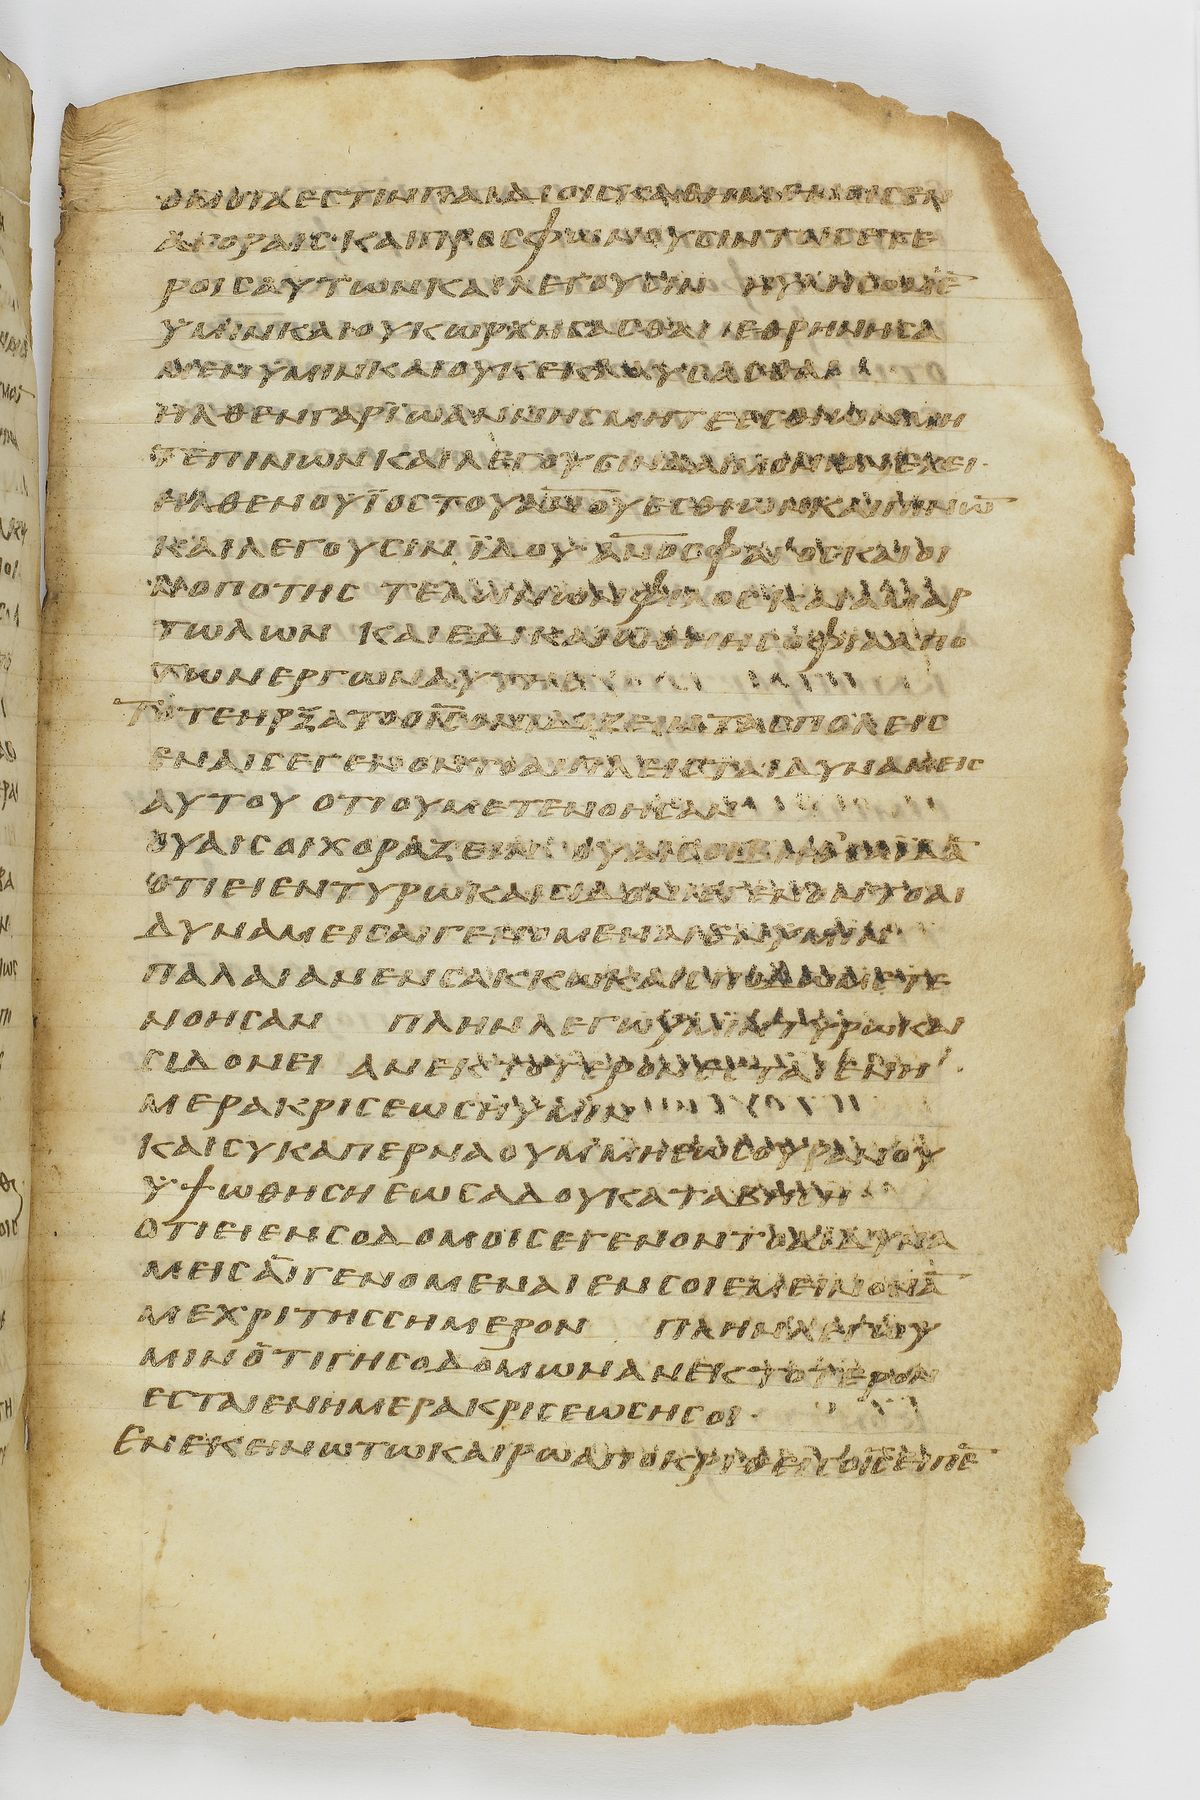 ΟΜΟΙΑ ΕΣΤΙΝ ΠΑΙΔΙΟΙΣ ΚΑΘΗΜΕΝΟΙΣ ΕΝ
ΑΓΟΡΑΙΣ· ΚΑΙ ΠΡΟΣΦΩΝΟΥΣΙΝ ΤΟΙΣ ΕΤΕ
ΡΟΙΣ ΑΥΤΩΝ ΚΑΙ ΛΕΓΟΥΣΙΝ
ΥΜΙΝ ΚΑΙ ΟΥΚ ΩΡΧΗΣΑΣΘΑΙ ΕΘΡΗΝΗΣΑ
ΜΕΝ ΥΜΙΝ ΚΑΙ ΟΥΚ ΕΚΟΨΑΣΘΑΙ
ΗΛΘΕΝ ΓΑΡ ΙΩΑΝΝΗΣ ΜΗΤΕ ΕΣΘΙΩΝ ΜΗ
ΤΕ ΠΙΝΩΝ ΚΑΙ ΛΕΓΟΥΣΙΝ ΔΑΙΜΟΝΙΟΝ ΕΧΕΙ·
ΗΛΘΕΝ Ο ΥΪΟΣ ΤΟΥ ΑΝΟΥ ΕΣΘΙΩΝ ΚΑΙ ΠΙΝΩ̅
ΚΑΙ ΛΕΓΟΥΣΙΝ ΪΔΟΥ ΑΝΟΣ ΦΑΓΟΣ ΚΑΙ ΟΙ
ΝΟΠΟΤΗΣ ΤΕΛΩΝΩΝ ΦΙΛΟΣ ΚΑΙ ΑΜΑΡ
ΤΩΛΩΝ ΚΑΙ ΕΔΙΚΑΙΩΘΗ Η ΣΟΦΙΑ ΑΠΟ
ΤΩΝ ΕΡΓΩΝ ΑΥΤΗΣ
ΤΟΤΕ ΗΡΞΑΤΟ Ο ΙΣ ΟΝΙΔΙΖΕΙΝ ΤΑΣ ΠΟΛΕΙΣ
ΕΝ ΑΙΣ ΕΓΕΝΟΝΤΟ ΑΙ ΠΛΕΙΣΤΑΙ ΔΥΝΑΜΕΙΣ
ΑΥΤΟΥ ΟΤΙ ΟΥ ΜΕΤΕΝΟΗΣΑΝ
ΟΥΑΙ ΣΟΙ ΧΟΡΑΖΕΙΝ ΟΥΑΙ ΣΟΙ
ΟΤΙ ΕΙ ΕΝ ΤΥΡΩ ΚΑΙ ΣΙΔΩΝΙ ΕΓΕΝΟΝΤΟ ΑΙ
ΔΥΝΑΜΕΙΣ ΑΙ ΓΕΝΟΜΕΝΑΙ ΕΝ ΥΜΙΝ
ΠΑΛΑΙ ΑΝ ΕΝ ΣΑΚΚΩ ΚΑΙ ΣΠΟΔΩ ΜΕΤΕ
ΝΟΗΣΑΝ ΠΛΗΝ ΛΕΓΩ ΥΜΙΝ ΤΥΡΩ ΚΑΙ
ΣΙΔΟΝΕΙ ΑΝΕΚΤΟΤΕΡΟΝ ΕΣΤΑΙ ΕΝ Η
ΜΕΡΑ ΚΡΙΣΕΩΣ Η ΥΜΙΝ
ΚΑΙ ΣΥ ΚΑΠΕΡΝΑΟΥΜ ΜΗ ΕΩΣ ΟΥΡΑΝΟΥ
ΥΨΩΘΗΣΗ ΕΩΣ ΑΔΟΥ ΚΑΤΑΒΗΣΗ
ΟΤΙ ΕΙ ΕΝ ΣΟΔΟΜΟΙΣ ΕΓΕΝΟΝΤΟ ΑΙ ΔΥΝΑ
ΜΕΙΣ ΑΙ ΓΕΝΟΜΕΝΑΙ ΕΝ ΣΟΙ ΕΜΕΙΝΟΝ Α̅
ΜΕΧΡΙ ΤΗΣ ΣΗΜΕΡΟΝ ΠΛΗΝ ΛΕΓΩ Υ
ΜΙΝ ΟΤΙ ΓΗ ΣΟΔΟΜΩΝ ΑΝΕΚΤΟΤΕΡΟΝ
ΕΣΤΑΙ ΕΝ ΗΜΕΡΑ ΚΡΙΣΕΩΣ Η ΣΟΙ·
ΕΝ ΕΚΕΙΝΩ ΤΩ ΚΑΙΡΩ ΑΠΟΚΡΙΘΕΙΣ Ο ΙΣ ΕΙΠΕ̅